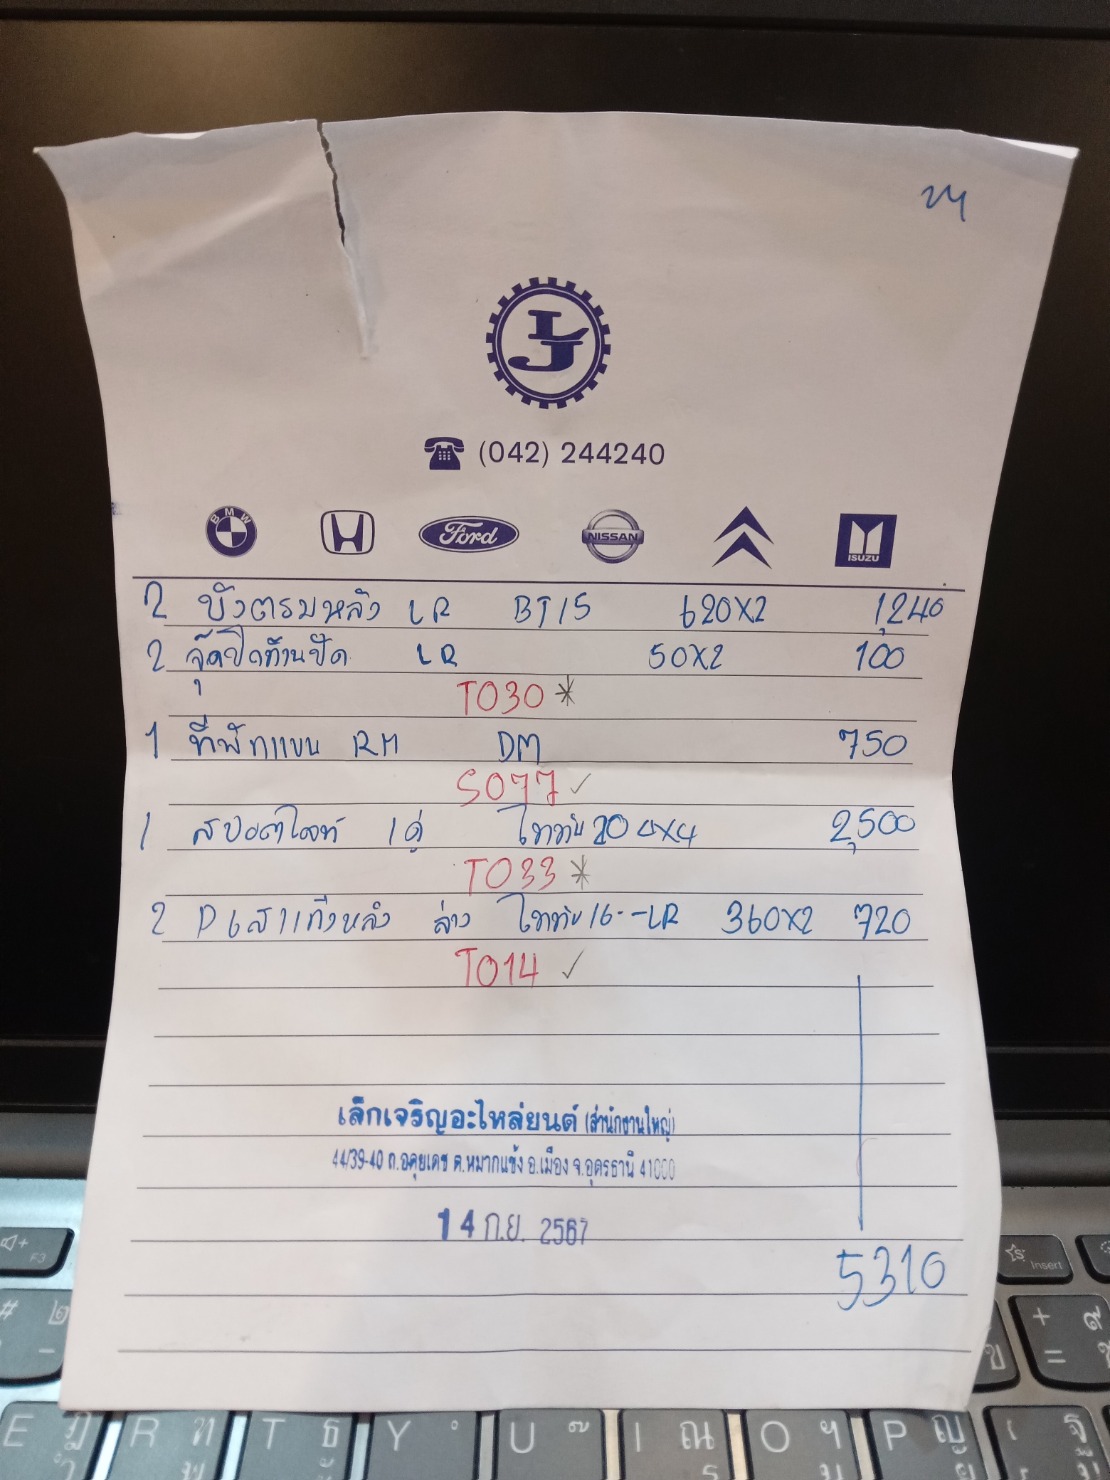 LJ
(042) 244240
BMW Ford NISSAN ISUZU
2 บังตรมหลัง LR BT15 620X2 1,240
2 จุ๊คปิดท้ายปัด LR 50X2 100
TO30 *
1 ที่พักแขน RM DM 750
SO77 ✓
1 สปอตไลท์ 1คู่ ไททัน 20 4X4 2,500
TO33 *
2 หลัง ล่าง ไททัน 16--LR 360X2 720
TO14 ✓
เล็กเจริญอะไหล่ยนต์ (สำนักงานใหญ่)
44/39-40 ถ.อดุยเดช ต.หมากแข้ง อ.เมือง จ.อุดรธานี 41000
14 ก.ย. 2567
5310
E R T Y U I O P
F3 Insert